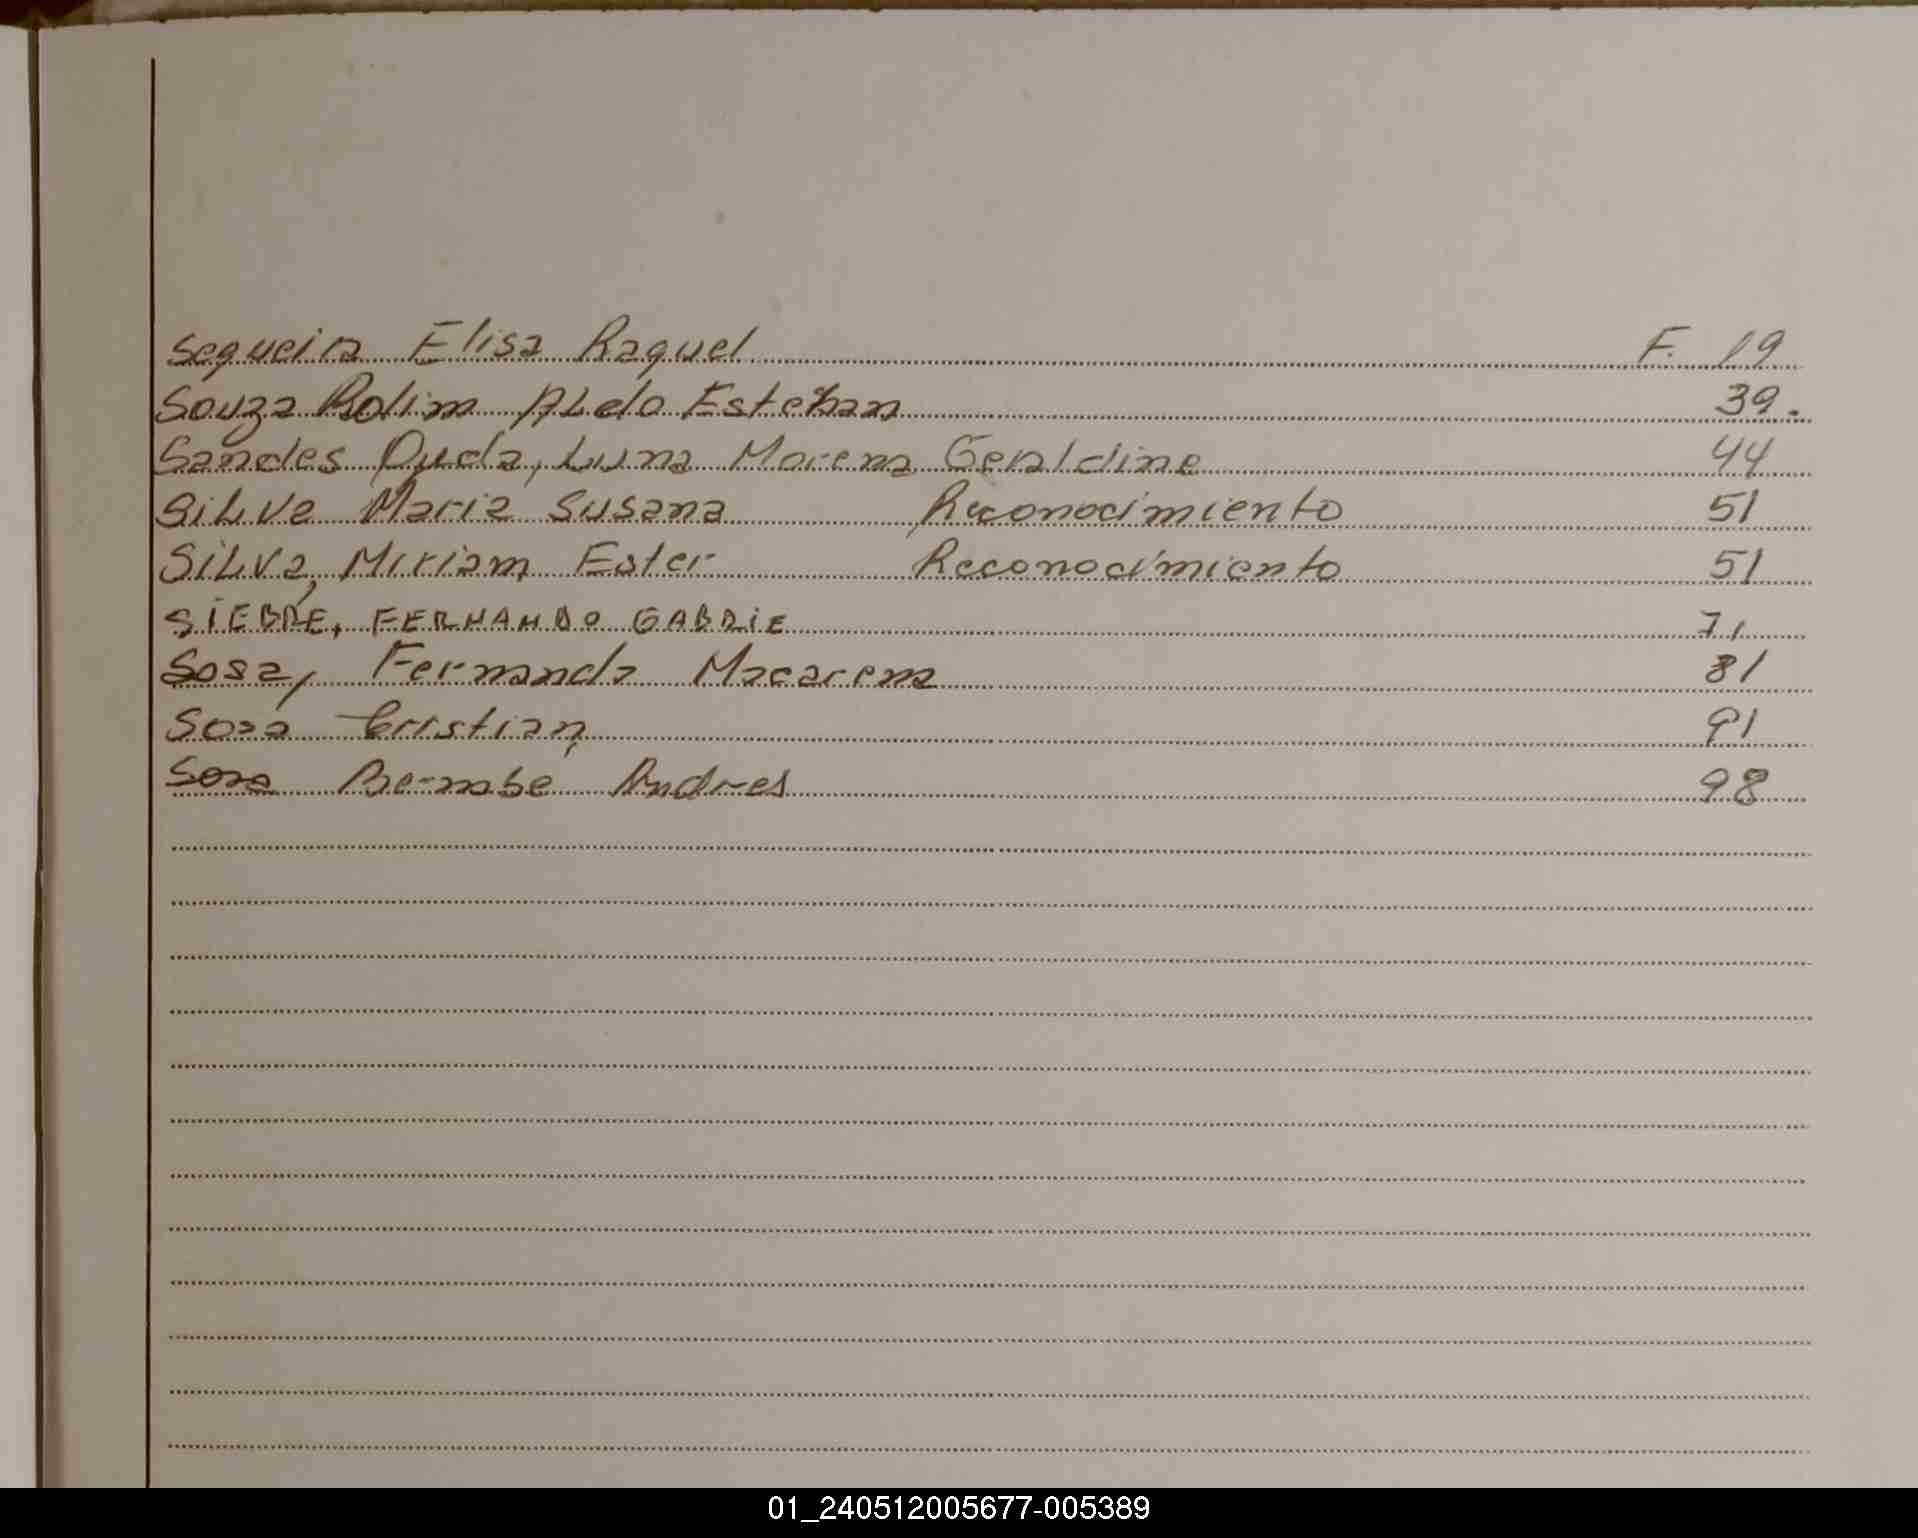 Sequeira Elisa Raquel F. 19
Souza Rolim ALdo Esteban 39.
Sandes Duda, Luna Morena Geraldine 44
SiLva Maria Susana Reconocimiento 51
SiLva, Miriam Ester Reconocimiento 51
SiEBRE, FERNANDO GABRiE 71
Sosa, Fernanda Macarena 81
Sosa Cristian 91
Sosa Bernabe Andres 98
01_240512005677-005389